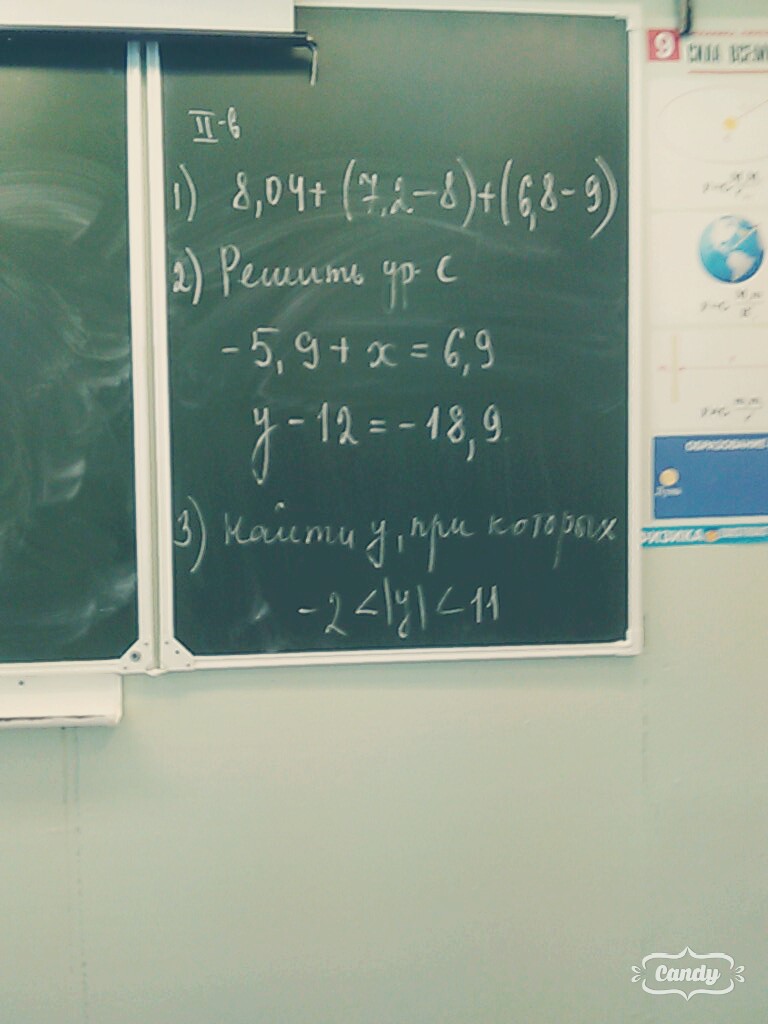 II-в
1) 8,04+ (7,2-8)+(6,8-9)
2) Решить ур-с
-5,9+x=6,9
y-12=-18,9
3) найти y, при которых
-2<|y|<11
9
ОБРАЗОВАНИЕ
ФИЗИКА
Candy